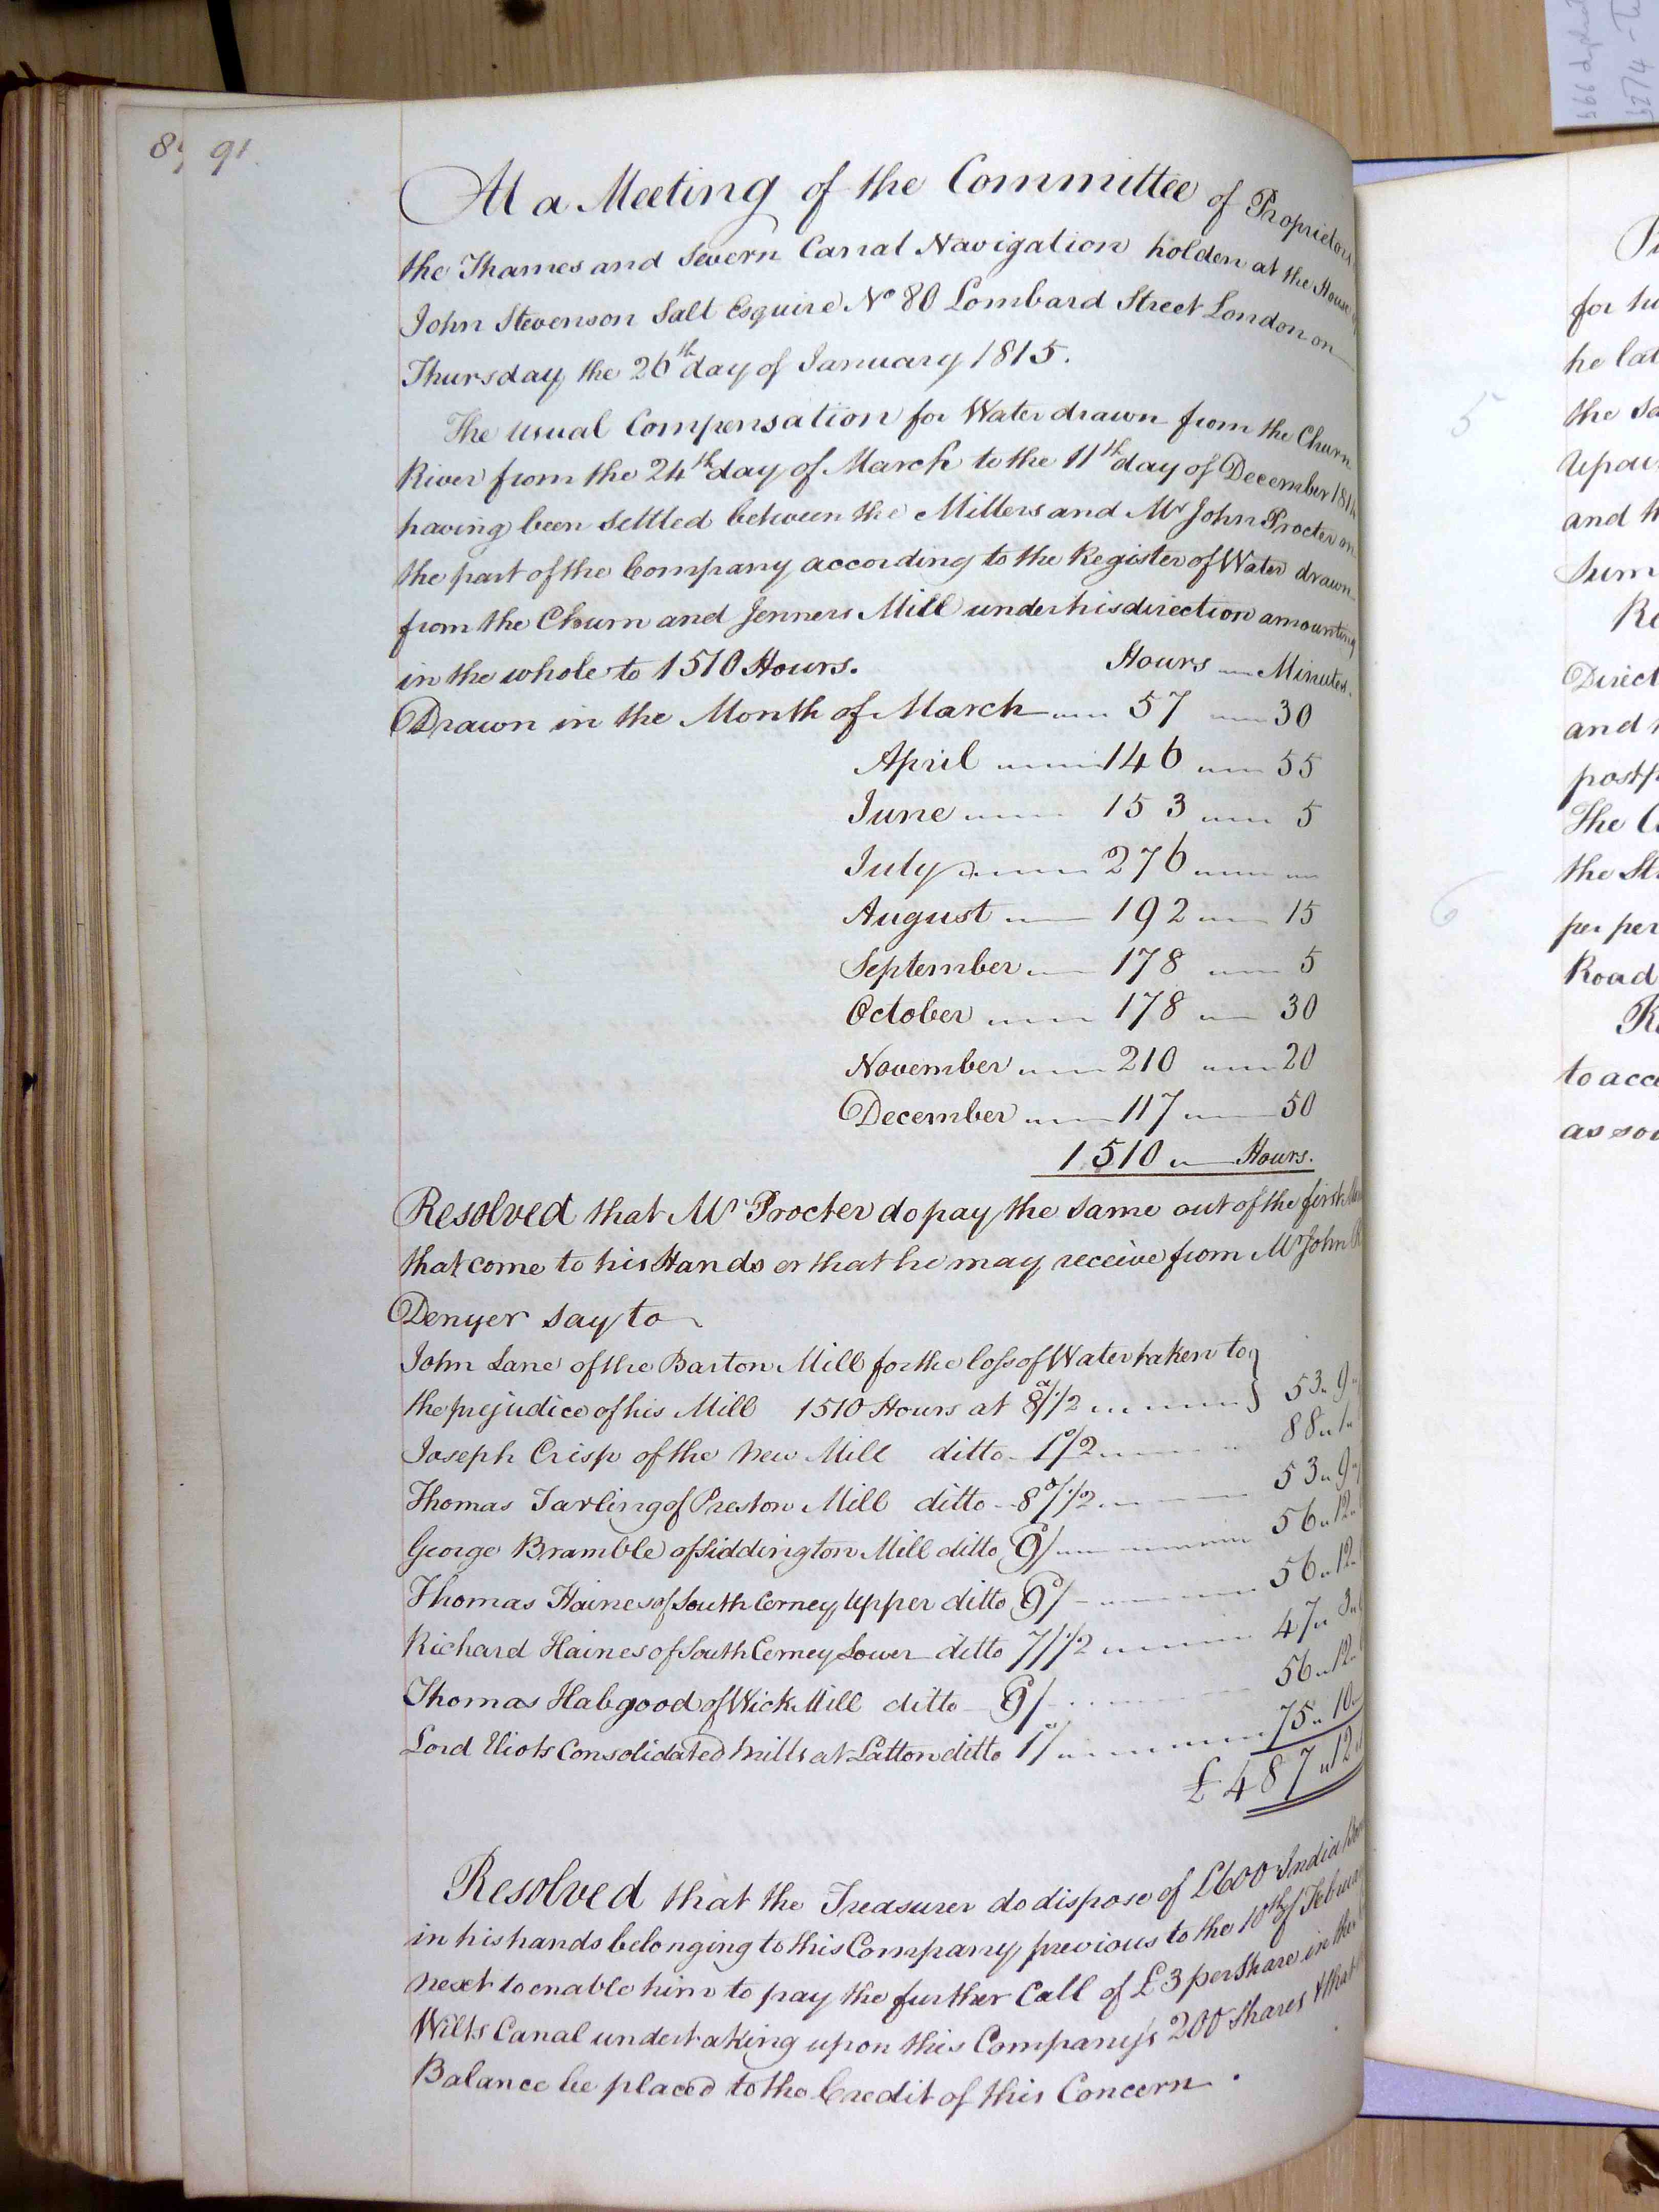 91.
At a Meeting of the Committee of Proprietors
the Thames and Severn Canal Navigation holden at the House
John Stevenson Salt Esquire No 80 Lombard Street London on
Thursday the 26th day of January 1815.
The usual Compensation for Water drawn from the Churn
River from the 24th day of March to the 11th day of December 1814
having been settled between the Millers and Mr John Procter on
the part of the Company according to the Register of Water drawn
from the Churn and Jenners Mill under his direction amounting
in the whole to 1510 Hours. Hours Minutes.
Drawn in the Month of March 57 30
April 146 55
June 153 5
July 276
August 192 15
September 178 5
October 178 30
November 210 20
December 117 50
1510 Hours.
Resolved that Mr Procter do pay the same out of the first
that come to his Hands or that he may receive from Mr John
Denyer say to
John Lane of the Barton Mill for the loss of Water taken to
the prejudice of his Mill 1510 Hours at 8d/1/2 53 " 9 "
Joseph Crisp of the New Mill ditto 1s/2 88 " 1 "
Thomas Tarling of Preston Mill ditto 8d/1/2 53 " 9 "
George Bramble of Siddington Mill ditto 9d/ 56 " 12 "
Thomas Haines of South Cerney Upper ditto 9d/ 56 " 12 "
Richard Haines of South Cerney Lower ditto 7/1/2 47 " 3 "
Thomas Habgood of Wick Mill ditto 9/ 56 " 12 "
Lord Eliots Consolidated Mills at Latton ditto 1s/ 75 " 10
£487 " 12
Resolved that the Treasurer do dispose of £600 India
in his hands belonging to this Company previous to the 10th of
next to enable him to pay the further Call of £3 per Share in the
Wilts Canal undertaking upon this Company's 200 Shares & that
Balance be placed to the Credit of this Concern.
5
6
for
the
and
Direct
and
The
the
per per
Road